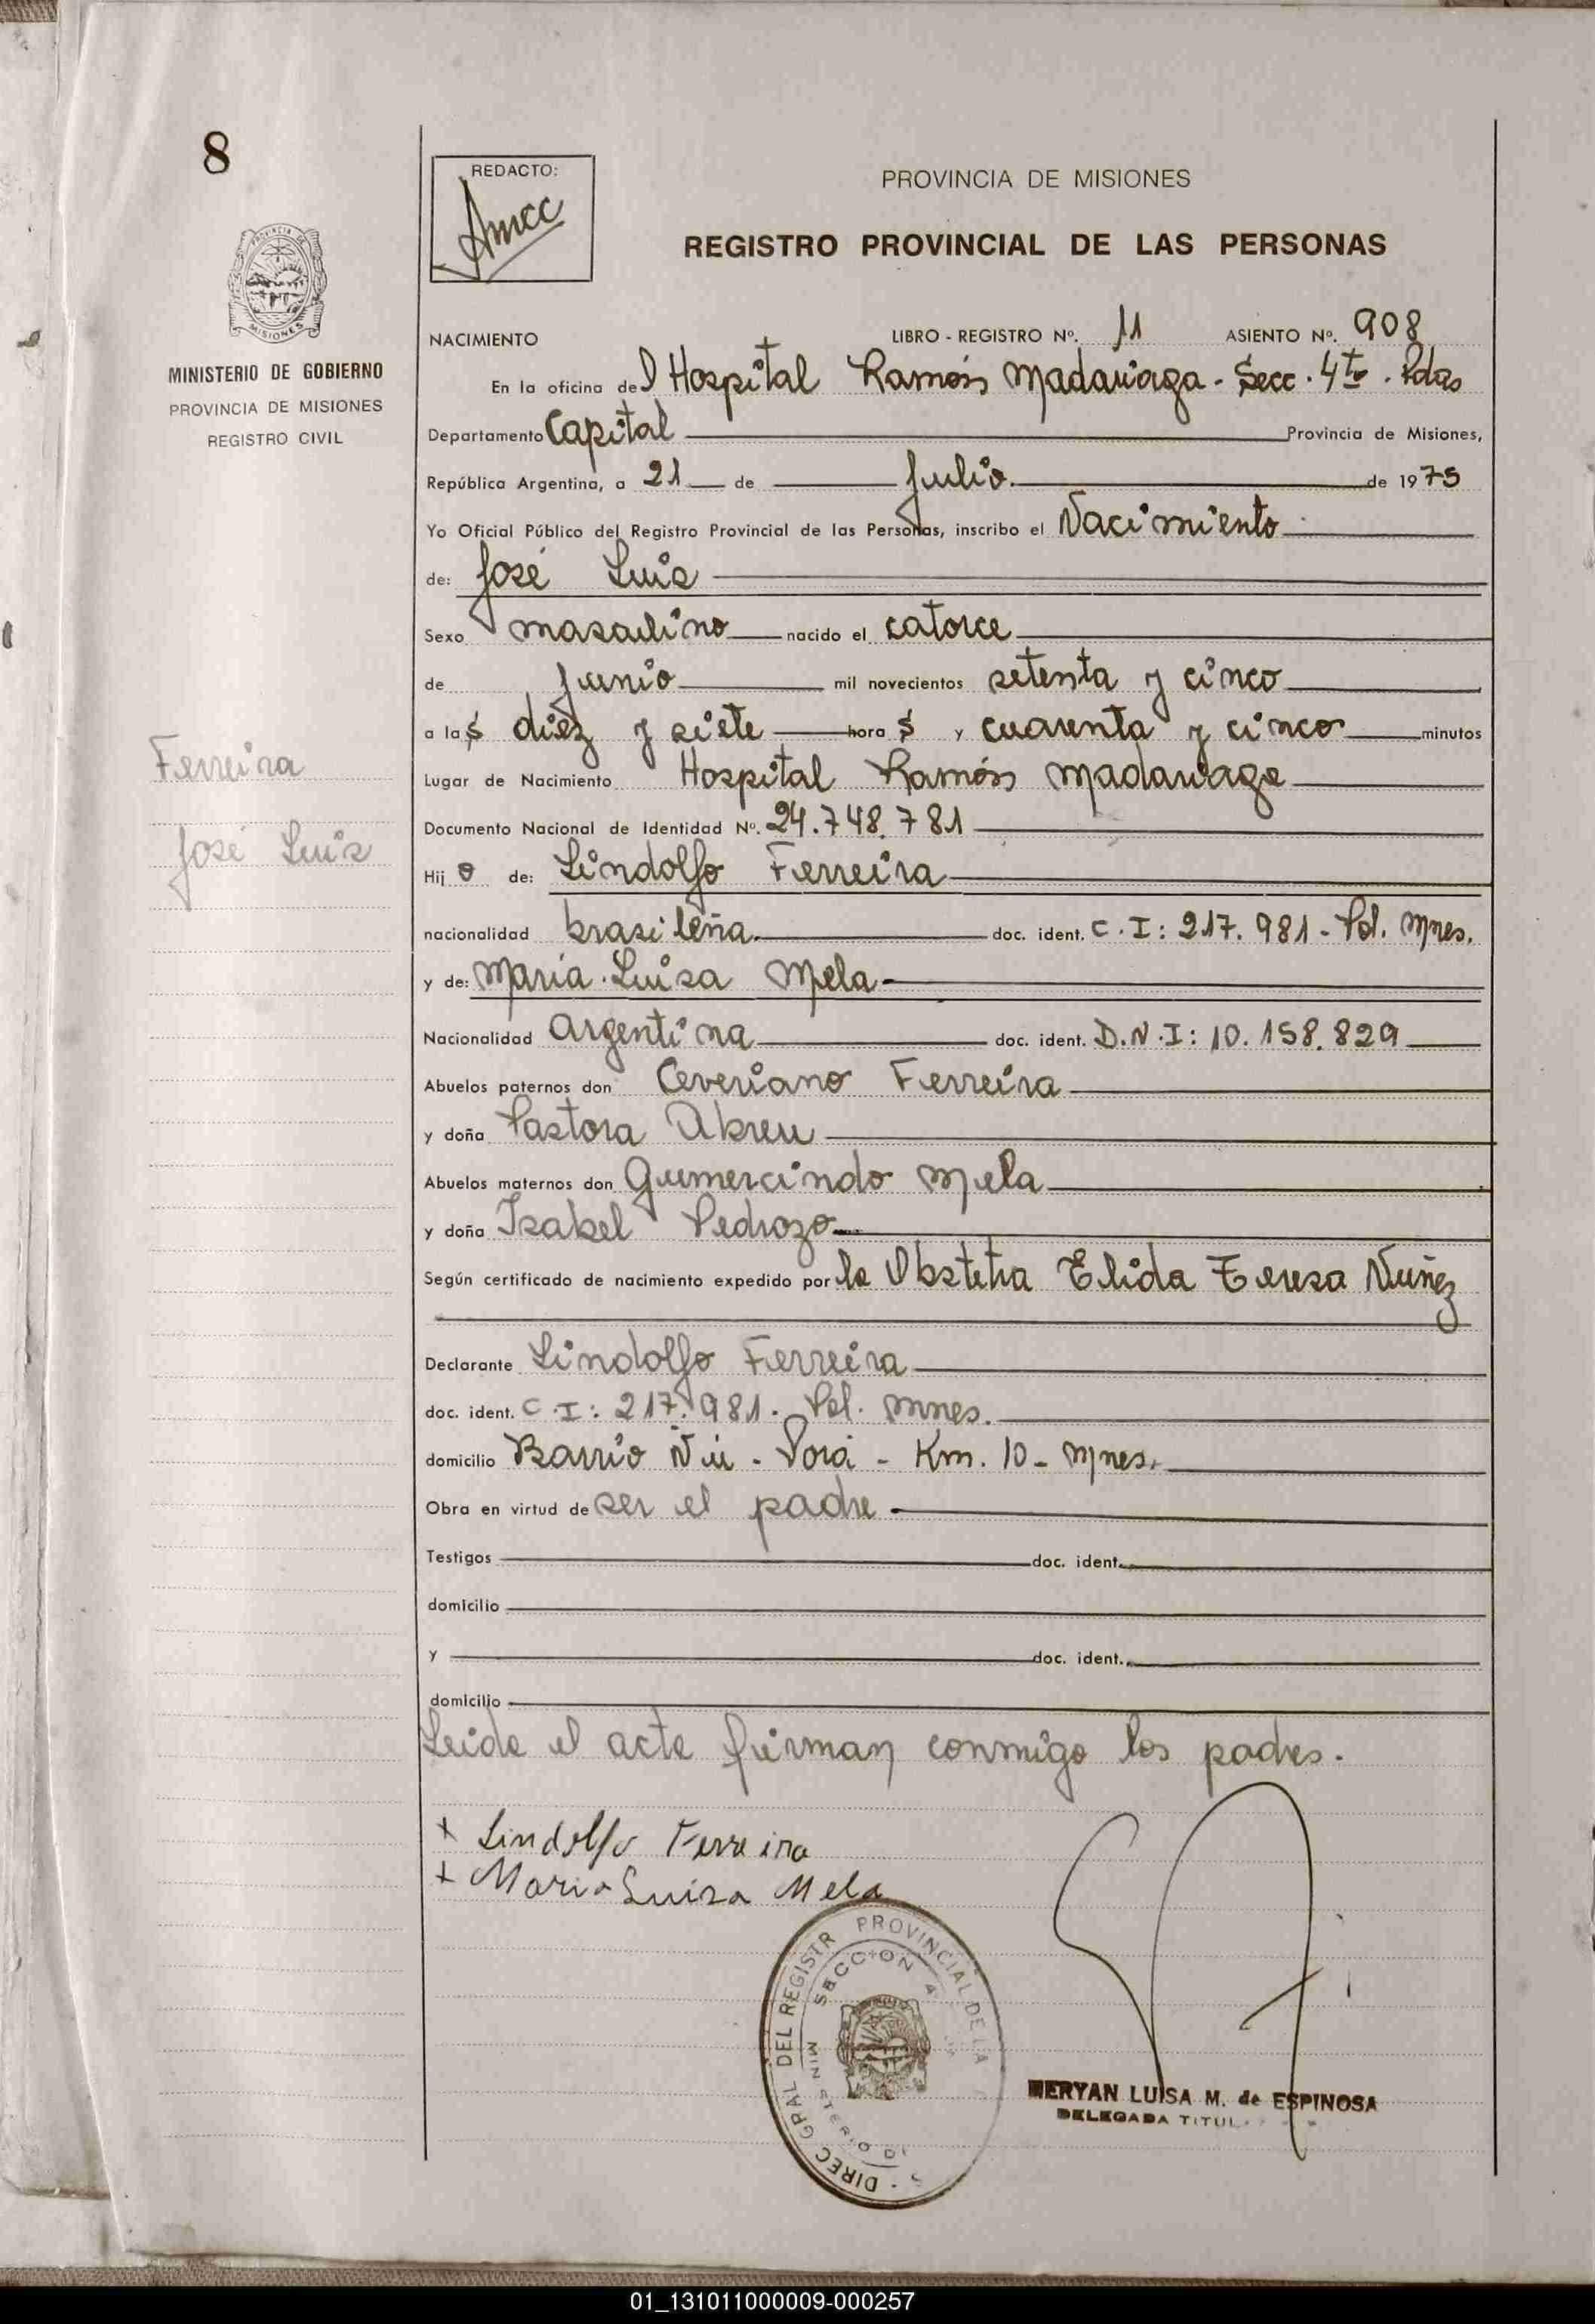 8
REDACTO:
PROVINCIA DE MISIONES
REGISTRO PROVINCIAL DE LAS PERSONAS
PROVINCIA DE
MISIONES
MINISTERIO DE GOBIERNO
PROVINCIA DE MISIONES
REGISTRO CIVIL
NACIMIENTO LIBRO - REGISTRO Nº. 11 ASIENTO Nº. 908
En la oficina del Hospital Ramón Madariaga - Secc. 4ta. Pdas
Departamento Capital Provincia de Misiones,
República Argentina, a 21 de Julio de 1975
Yo Oficial Público del Registro Provincial de las Personas, inscribo el Nacimiento
de: José Luis
Sexo masculino nacido el catorce
de junio mil novecientos setenta y cinco
a las diez y siete horas y cuarenta y cinco minutos
Ferreira
Lugar de Nacimiento Hospital Ramón Madariaga
Documento Nacional de Identidad Nº. 24.748.781
José Luis
Hijo de: Lindolfo Ferreira
nacionalidad brasileña doc. ident. C.I: 217.981 - Pol. Mnes.
y de: María Luisa Mela
Nacionalidad Argentina doc. ident. D.N.I: 10.158.829
Abuelos paternos don Ceveriano Ferreira
y doña Pastora Abreu
Abuelos maternos don Gumercindo Mela
y doña Isabel Pedrozo
Según certificado de nacimiento expedido por la Obstetra Elida Teresa Nuñez
Declarante Lindolfo Ferreira
doc. ident. C.I: 217.981. Pol. Mnes.
domicilio Barrio Ñu - Porá - Km. 10 - Mnes.
Obra en virtud de ser el padre
Testigos doc. ident.
domicilio
y doc. ident.
domicilio
Leida el acta firman conmigo los padres.
+ Lindolfo Ferreira
+ Maria Luisa Mela
DIREC GRAL DEL REGISTR PROVINCIAL DE LA
SECCION 4
MERYAN LUISA M. de ESPINOSA
DELEGADA TITUL
01_131011000009-000257